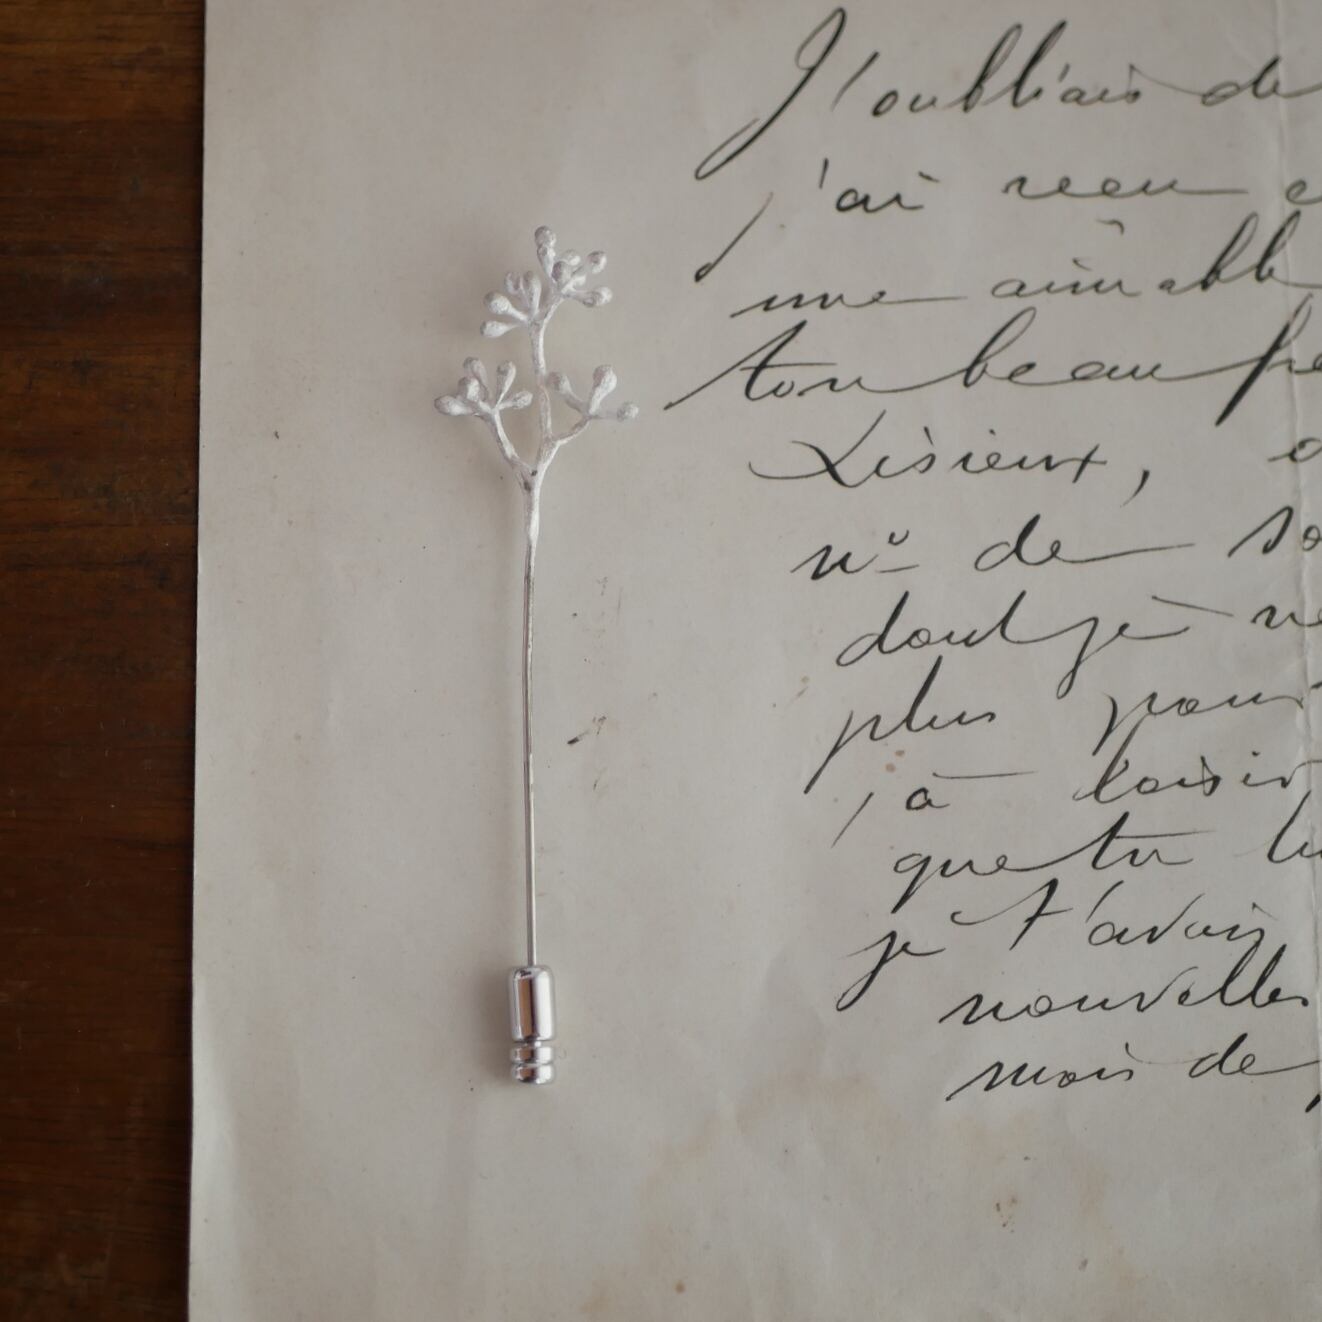 J'oubliais de
j'ai reçu
une aimable
ton beau
Lisieux,
n° de
dont je ne
plus pour
à loisir
que tu
je t'avais
nouvelles
mois de